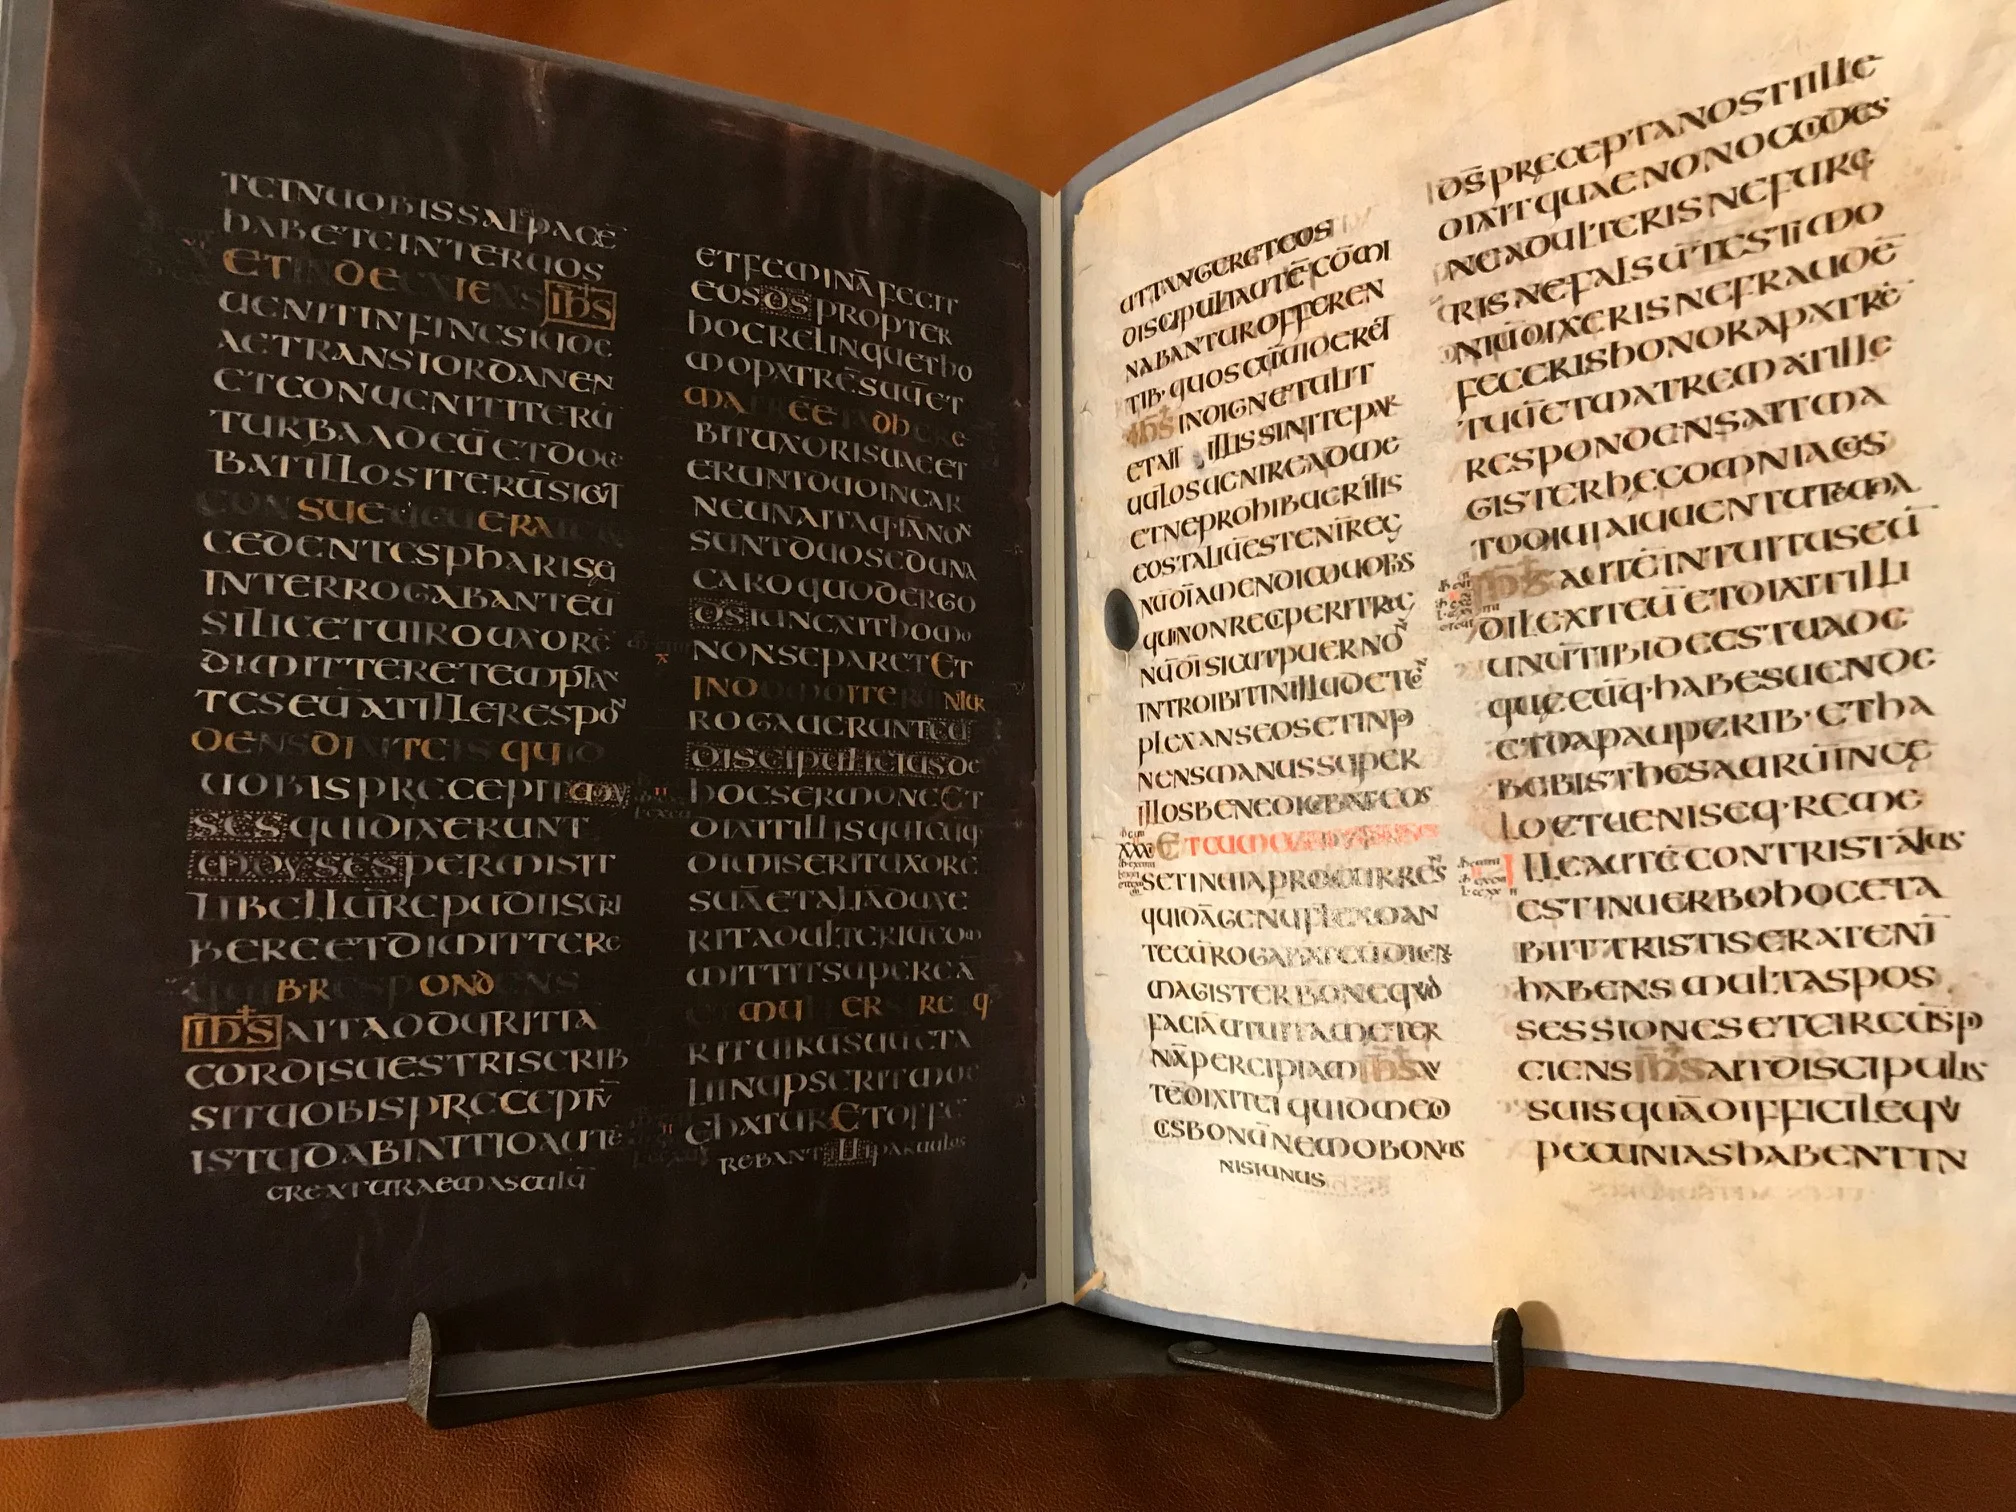 TEINUOBISSALPACĒ
HABETEINTERUOS
ET INDE EXIENS IHS
UENITINFINESIUDE
AETRANSIORDANEN
ETCONUENITITERŪ
TURBAADEŪETDOCE
BATILLOSITERŪSICUT
CONSUEUERAT
CEDENTESPHARISEI
INTERROGABANTEŪ
SILICETUIROUXORĒ
DIMITTERETEMPTAN
TESEŪATILLERESPON
DENSDIXITEISQUID
UOBISPRECEPITMOY
SESQUIDIXERUNT
MOYSESPERMISIT
LIBELLŪREPUDIISCRI
BEREETDIMITTERE
QUIBRESPONDENS
IHSAITADDURITIĀ
CORDISUESTRISCRIB
SITUOBISPRECEPTŪ
ISTUDABINITIOAUTĒ
CREATURAEMASCULŪ
ETFEMINĀFECIT
EOSDSPROPTER
HOCRELINQUETHO
MOPATRĒSUŪET
MATREETADHERE
BITUXORISUAEET
ERUNTDUOINCAR
NEUNAITAQ·IĀNON
SUNTDUOSEDUNA
CAROQUODERGO
DSIUNEXITHOMO
NONSEPARETET
INDOMOITERUMINTER
ROGAUERUNTEŪ
DISCIPULIEIUSDE
HOCSERMONEET
DIXITILLISQUICŪQ·
DIMISERITUXORĒ
SUĀETALIĀDUXE
RITADULTERIŪCOM
MITTITSUPEREĀ
ETMULIER
RITUIRŪSUŪETA
LIINUPSERITMOE
CHATURETOFFE
REBANTILLIPARUULOS
UTTANGERETEOS
DISCIPULIAUTĒCŌMI
NABANTUROFFEREN
TIB·QUOSCŪUIDERET
IHSINDIGNETULIT
ETAIT ILLISSINITEPAR
UULOSUENIREADME
ETNEPROHIBUERITIS
EOSTALIŪESTENĪREG
NŪDĪAMENDICOUOBIS
QUINONRECEPERITREG
NŪDĪSICUTPUERNON
INTROIBITINILLUDETCON
PLEXANSEOSETINP
NENSMANUSSUPER
ILLOSBENEDICEBATEOS
ETCUM
SETINUIAPROCURRENS
QUIDĀGENUFLEXOAN
TEEŪROGABATEŪDICENS
MAGISTERBONEQUID
FACIĀUTUITAMETER
NĀPERCIPIAMIHSAU
TĒDIXITEIQUIDMED
ICISBONŪNEMOBONUS
NISIUNUS
DSPRECEPTANOSTIILLE
DIXITQUAENONOCCIDES
NEADULTERISNEFURE
RISNEFALSŪTESTIMO
NIŪDIXERISNEFRAUDĒ
FECERISHONORAPATRĒ
TUŪETMATREMATILLE
RESPONDENSAITMA
GISTERHECOMNIAOBS
TODIUIAIUUENTUTEMEA
IHSAUTĒINTUITUSEŪ
DILEXITEŪETDIXITILLI
UNŪTIBIDEESTUADE
QUECŪQ·HABESUENDE
ETDAPAUPERIB·ETHA
BEBISTHESAURŪINCE
LOETUENISEQ·REME
ILLEAUTĒCONTRISTATUS
ESTINUERBOHOCETA
BIITTRISTISERATENĪ
HABENSMULTASPOS
SESSIONESETCIRCŪSP
CIENSIHSAITDISCIPULIS
SUISQUĀDIFFICILEQUI
PECUNIASHABENTIN